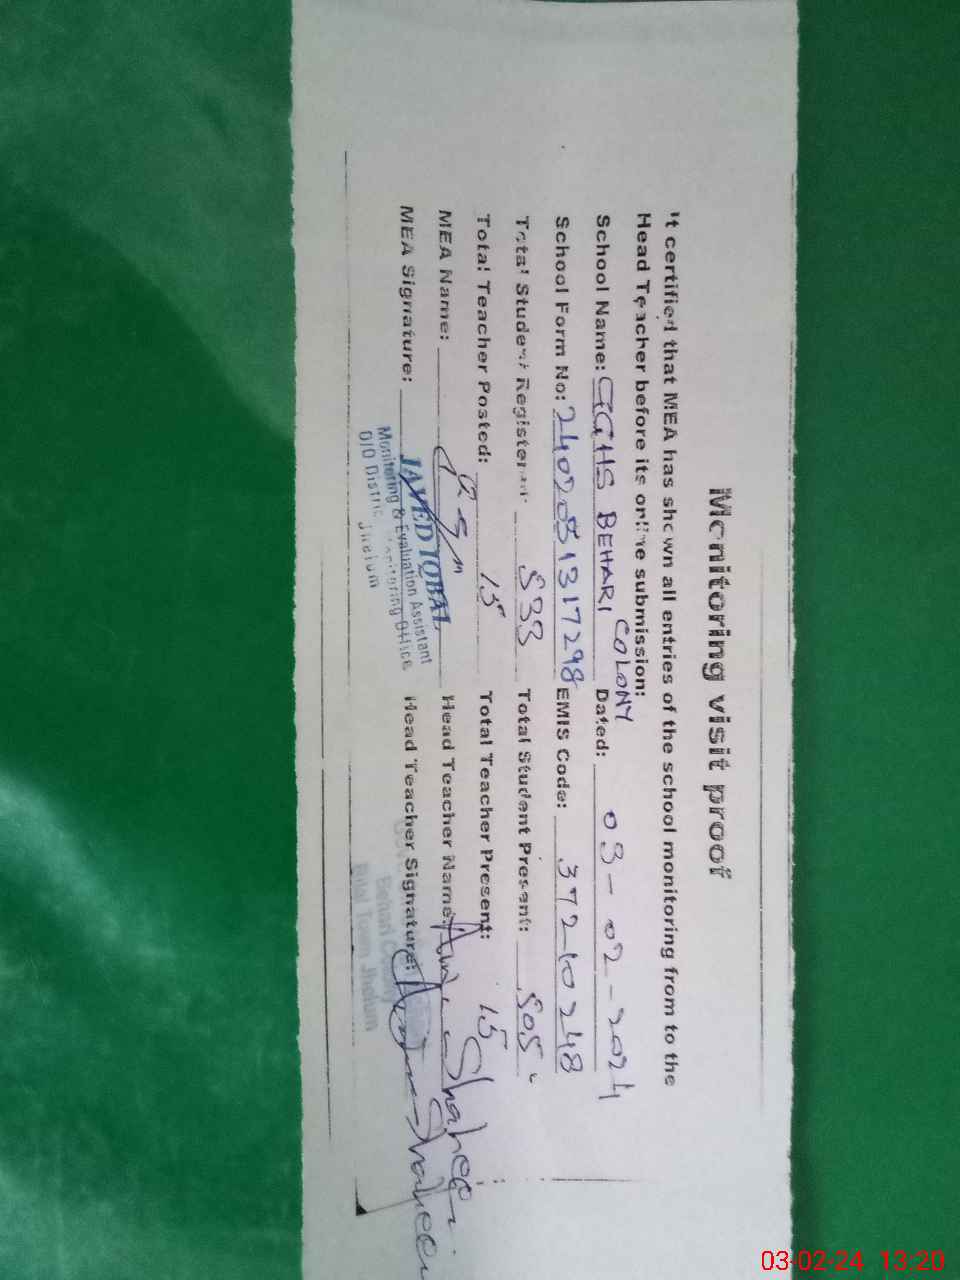 Monitoring visit proof
It certified that MEA has shown all entries of the school monitoring from to the
Head Teacher before its online submission:
School Name: GGHS BEHARI COLONY Dated: 03-02-2024
School Form No: EMIS Code: 37210248
Total Student Registered: 533 Total Student Present: 505
Total Teacher Posted: 15 Total Teacher Present: 15
MEA Name: Head Teacher Name: Shaheen
MEA Signature: Head Teacher Signature: Shaheen
JAVED IQBAL
Monitoring & Evaluation Assistant
D/O District Monitoring Office
Jhelum
Behari Colony
Bilal Town Jhelum
03-02-24 13:20